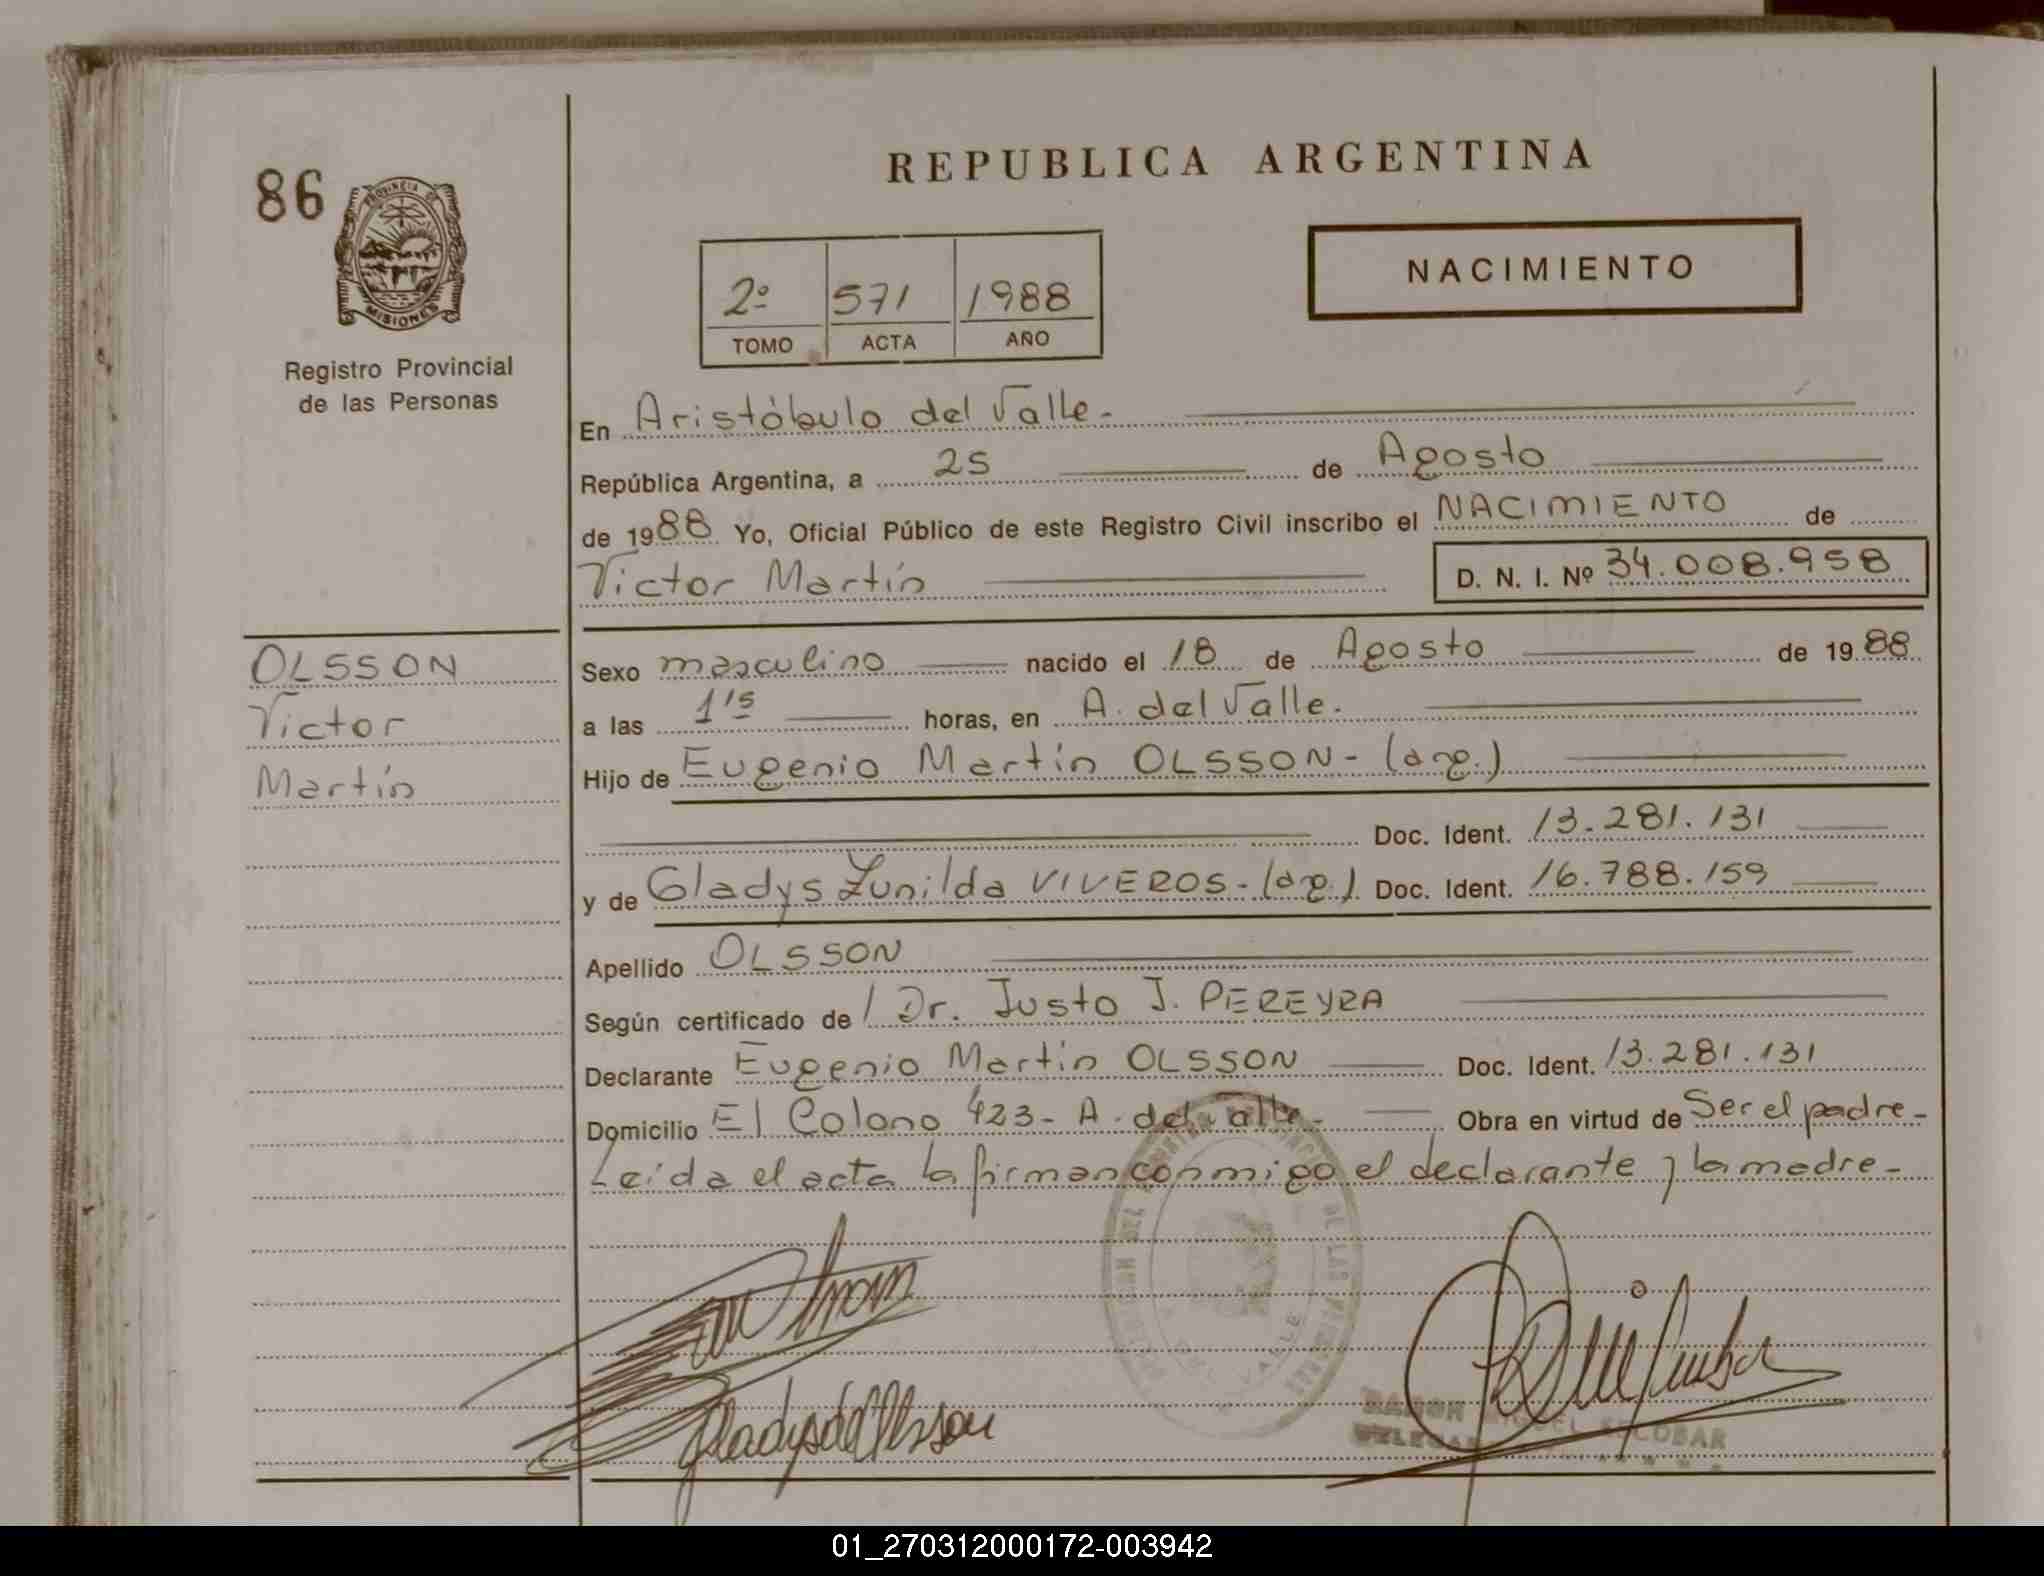 86
PROVINCIA DE
MISIONES
Registro Provincial
de las Personas
OLSSON
Victor
Martín
REPUBLICA ARGENTINA
2º 571 1988
TOMO ACTA AÑO
NACIMIENTO
En Aristóbulo del Valle.-
República Argentina, a 25 de Agosto
de 1988 Yo, Oficial Público de este Registro Civil inscribo el NACIMIENTO de
Victor Martín D. N. I. Nº 34.008.958
Sexo masculino nacido el 18 de Agosto de 1988
a las 1'15 horas, en A. del Valle.
Hijo de Eugenio Martín OLSSON- (arg.)
Doc. Ident. 13.281.131
y de Gladys Zunilda VIVEROS.- (arg.) Doc. Ident. 16.788.159
Apellido OLSSON
Según certificado de Dr. Justo J. PEREYRA
Declarante Eugenio Martín OLSSON Doc. Ident. 13.281.131
Domicilio El Colono 423- A. del Valle- Obra en virtud de Ser el padre-
Leída el acta la firman conmigo el declarante y la madre-
DE LAS PERSONAS
DEL VALLE
Gladys de Olsson
RAMON MIGUEL ESCOBAR
01_270312000172-003942